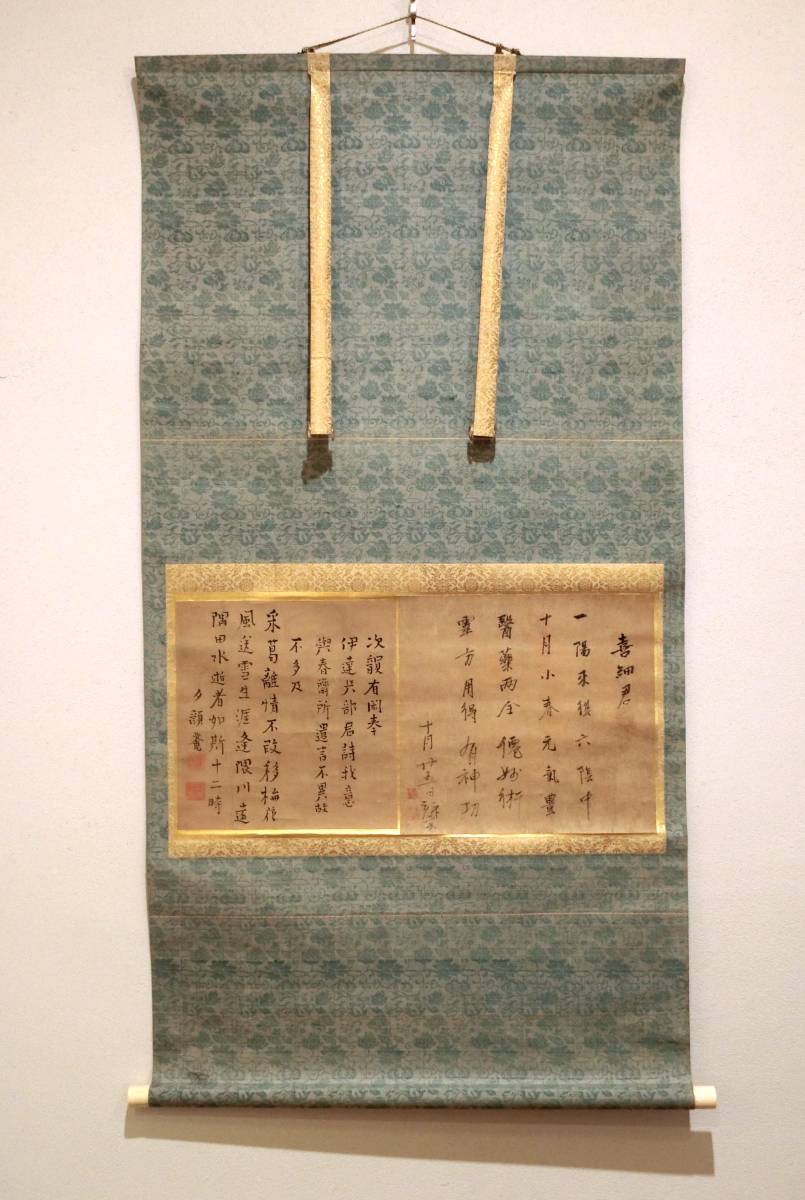 喜細君
一陽來復六陰中
十月小春元氣豊
醫藥兩全傳妙術
靈方用得有神功
十月廿五日
次韻有閑奉
伊達兵部君詩我意
與春齋所遣言不異故
不多及
采葛離情不改移梅花
風送雪生涯逢隈川遠
隅田水逝者如斯十二時
夕顔巷